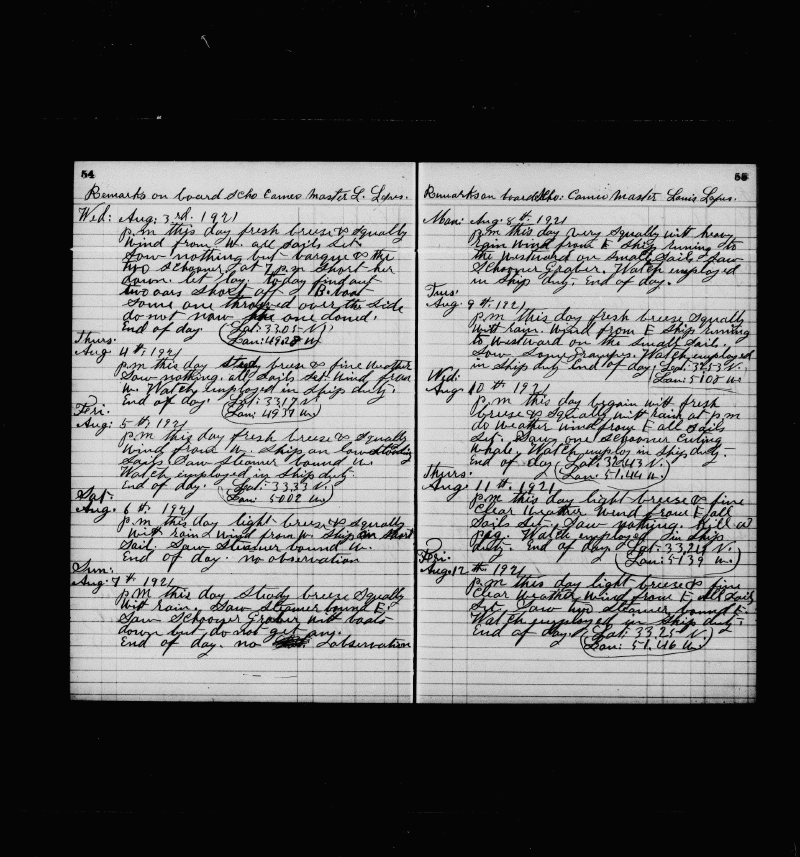 54
Remarks on board Scho Cameo Master L. Lopes.
Wed: Aug: 3rd. 1921
P.m this day fresh breeze & squally
Wind from W. all sails set.
Saw nothing but barque & the
two Schooner, at 7 p.m Short her
down. let day. to day find out
two oars Short off B. boat
Some one throwed over the side
do not now one doned.
End of day. Lat: 33.05 N.
Lon: 49.28 W.
Thurs:
Aug 4th. 1921
p.m this day steady breeze & fine Weather
Saw nothing, all Sails Set. Wind from
W. Watch employed in Ship duty.
End of day. Lat: 33.17 N.
Lon: 49.37 W.
Fri.
Aug: 5th. 1921
p.m this day fresh breeze & Squally
Wind from W. Ship on low
Sails Saw Steamer bound W.
Watch employed in Ship duty.
End of day. Lat: 33.33 N.
Lon: 50.02 W.
Sat.
Aug. 6th. 1921
p.m this day light breeze & Squally
Witt rain & Wind from W. Ship in Short
Sail. Saw Steamer bound W.
End of day. no observation
Sun:
Aug: 7th 1921
p.m this day Steady breeze Squally
Witt rain. Saw Steamer bound E.
Saw Schooner Graber witt boats
down but do not get any.
End of day. no observation
55
Remarks on board Scho: Cameo Master Louis Lopes.
Mon: Aug. 8th. 1921
p.m this day very Squally witt heavy
rain Wind from E Ship runing to
the Westward on Small Sails. Saw
Schooner Graber. Watch employed
in Ship duty. End of day.
Tues:
Aug. 9th. 1921
p.m this day fresh breeze Squally
Witt rain. Wind from E Ship runing
to Westward on the Small Sail.
Saw Some Grampes. Watch employed
in Ship duty End of day. Lat: 32.53 N.
Lon: 51.08 W.
Wed:
Aug: 10th 1921
P.m this day begain witt fresh
breeze & Squally witt rain at p.m
do Weather wind from E all Sails
Set. Saw one Schooner Cuting
Whale, Watch employ in Ship duty.
End of day Lat: 32.43 N.
Lon: 51.44 W.
Thurs:
Aug: 11th. 1921
p.m this day light breeze & fine
Clear Weather Wind from E all
Sails Set. Saw nothing. Kill a
pag. Watch employed in Ship
duty. End of day. Lat: 33.21 N.
Lon: 51.39 W.
Fri:
Aug. 12th. 1921
p.m this day light breeze & fine
Clear Weather Wind from E all Sails
Set. Saw Steamer bound E.
Watch employed in Ship duty.
End of day. Lat: 33.25 N.
Lon: 51.46 W.